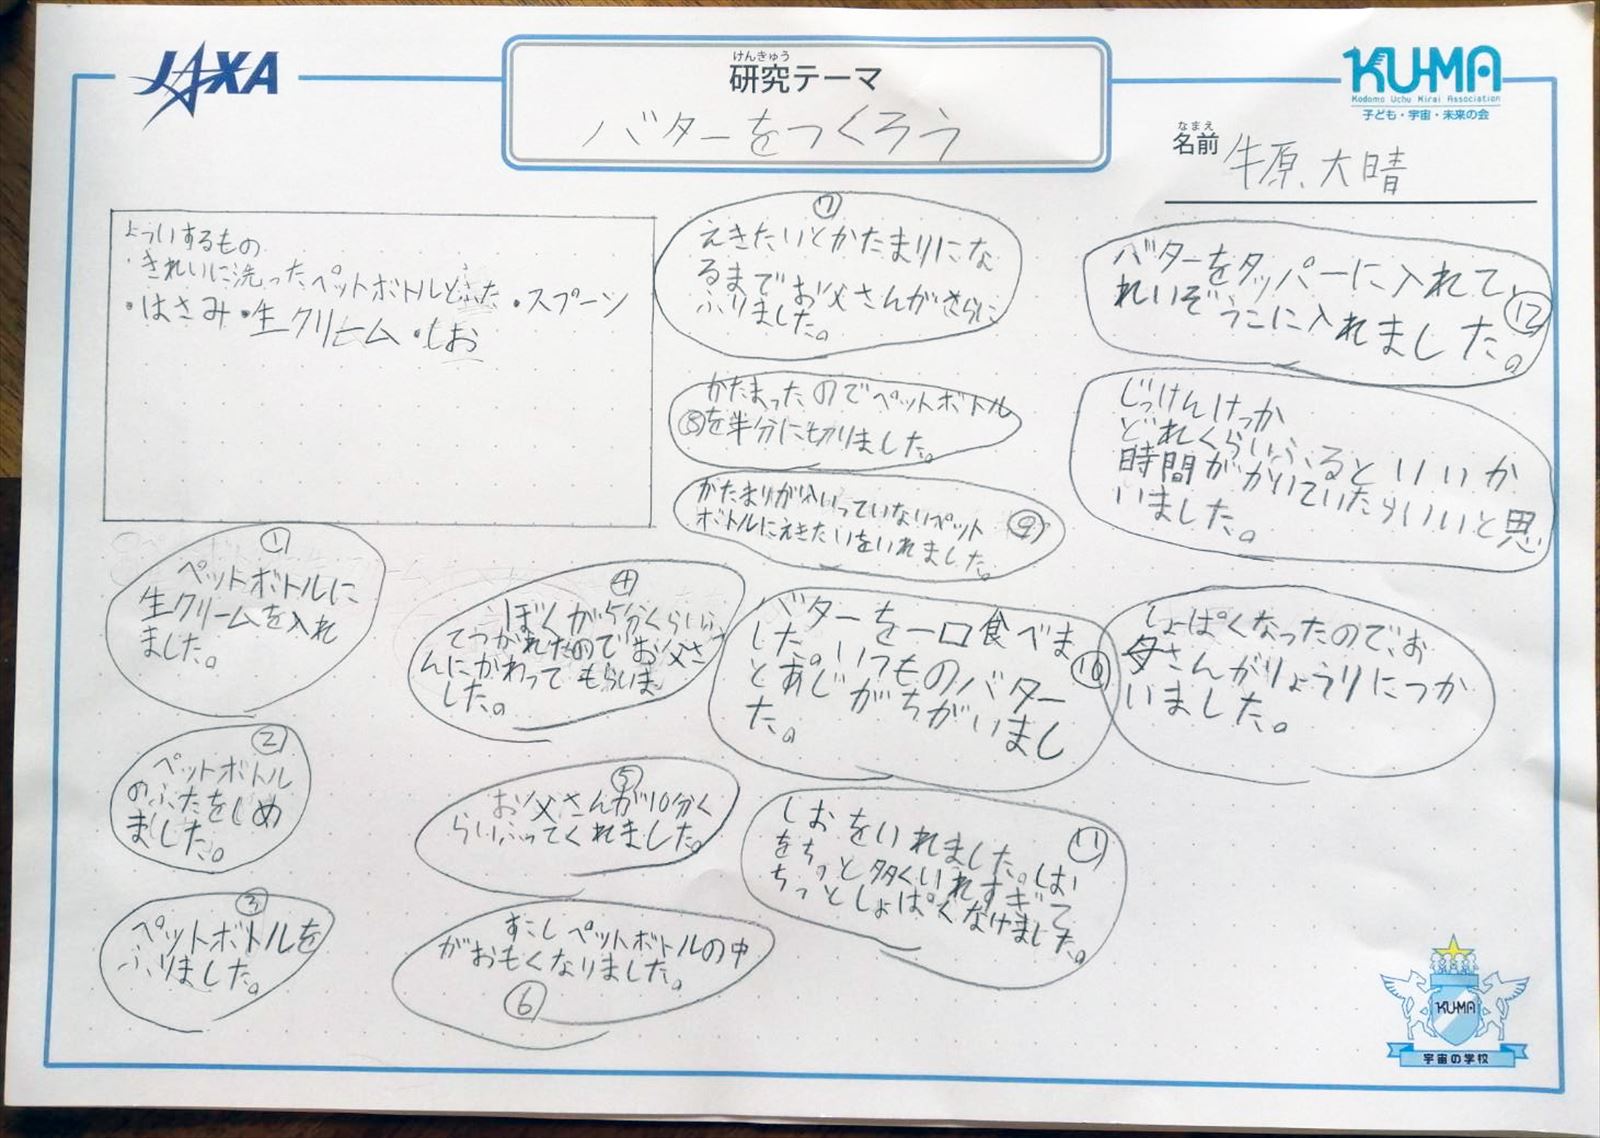 JAXA
けんきゅう
研究テーマ
バターをつくろう
KU-MA
Kodomo Uchu Mirai Association
子ども・宇宙・未来の会
なまえ
名前 牛原、大晴
よういするもの
・きれいに洗ったペットボトルとふた・スプーン
・はさみ・生クリーム・しお
①
ペットボトルに
生クリームを入れ
ました。
②
ペットボトル
のふたをしめ
ました。
③
ペットボトルを
ふりました。
④
ぼくが5分くらいふっ
てつかれたのでお父さ
んにかわってもらいま
した。
⑤
お父さんが10分く
らいふってくれました。
すこしペットボトルの中
がおもくなりました。
⑥
⑦
えきたいとかたまりにな
るまでお父さんがさらに
ふりました。
かたまったのでペットボトル
⑧を半分に切りました。
かたまりが入いっていないペット
ボトルにえきたいをいれました。
⑨
バターを一口食べま
した。いつものバター
とあじがちがいまし
た。
⑩
⑪
しおをいれました。しお
をちっと多くいれすぎて
ちっとしょぱくなけました。
バターをタッパーに入れて、
れいぞうこに入れました。
⑫
じっけんけっか
どれくらいふるといいか
時間がかいていたらいいと思
いました。
しょぱくなったので、お
母さんがりょうりにつか
いました。
KU-MA
宇宙の学校